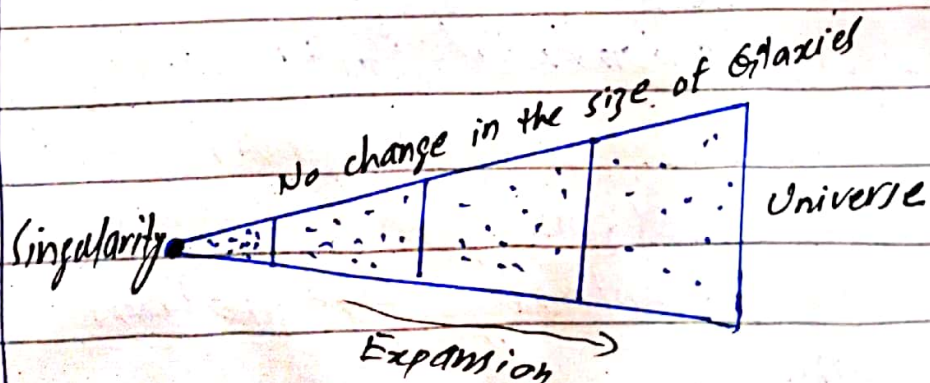 No change in the size of Galaxies
Singularity
Universe
Expansion